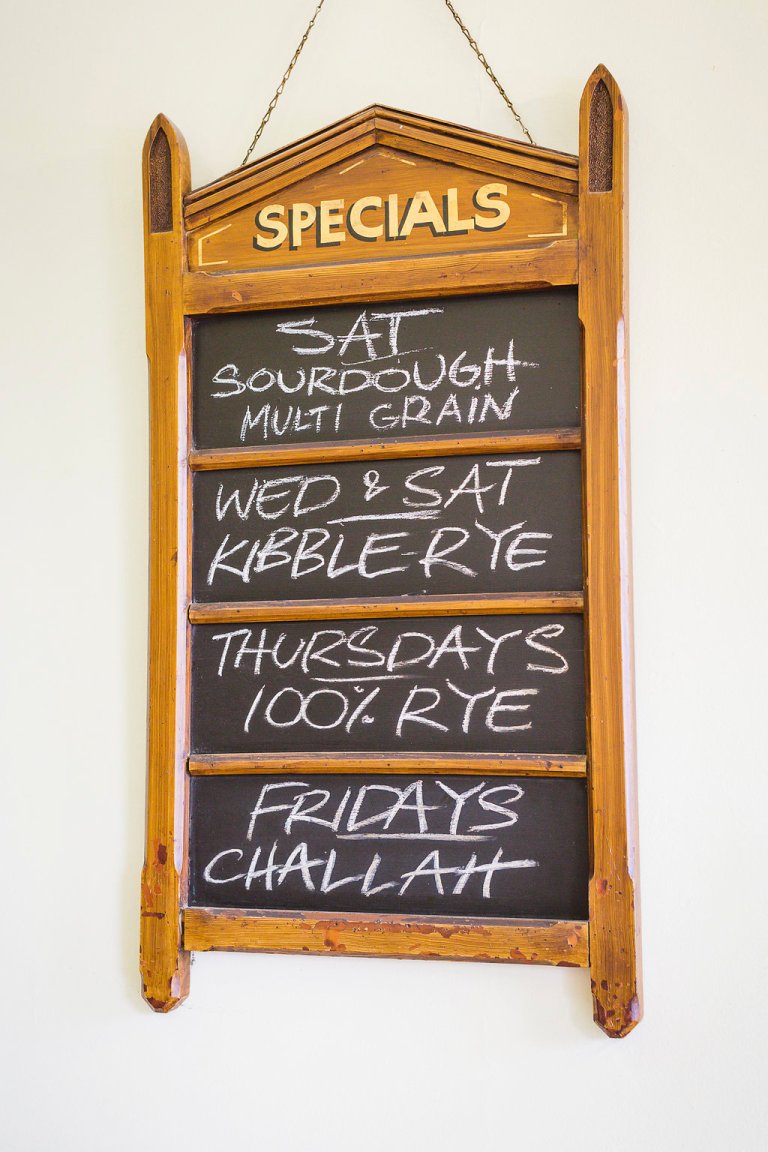 SPECIALS
SAT
SOURDOUGH
MULTI GRAIN
WED & SAT
KIBBLE-RYE
THURSDAYS
100% RYE
FRIDAYS
CHALLAH